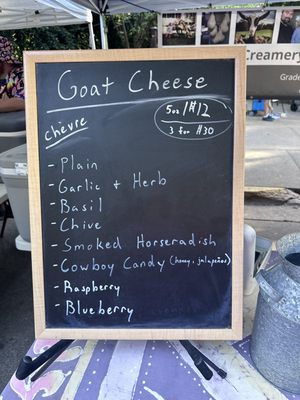 Creamery
Goat Cheese
chèvre
5oz/$12
3 for $30
- Plain
- Garlic + Herb
- Basil
- Chive
- Smoked Horseradish
- Cowboy Candy (honey, jalapeños)
- Raspberry
- Blueberry